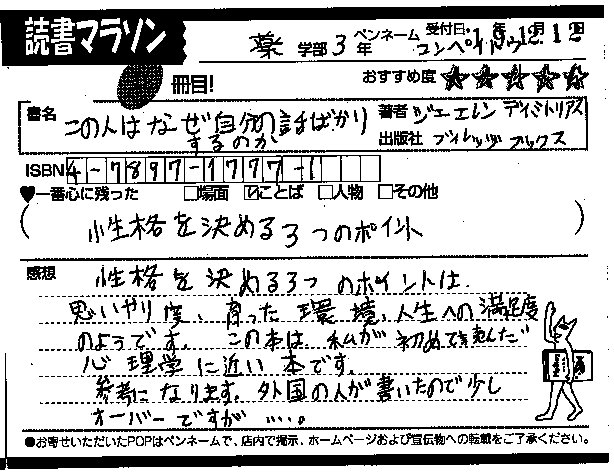 読書マラソン
薬 学部 3 年 ペンネーム コンペイトウ 受付日 19年12月12日
冊目! おすすめ度 ★★★★★
書名 この人はなぜ自分の話ばかりするのか
著者 ジョーエレン ディミトリアス
出版社 ヴィレッジブックス
ISBN 4-7897-1777-1
♥一番心に残った □場面 ☑ことば □人物 □その他
(性格を決める3つのポイント)
感想 性格を決める3つのポイントは、
思いやり度、育った環境、人生への満足度
のようです。この本は私が初めて読んだ
心理学に近い本です。
参考になります。外国の人が書いたので少し
オーバーですが……。
●お寄せいただいたPOPはペンネームで、店内で掲示、ホームページおよび宣伝物への転載をご了承ください。